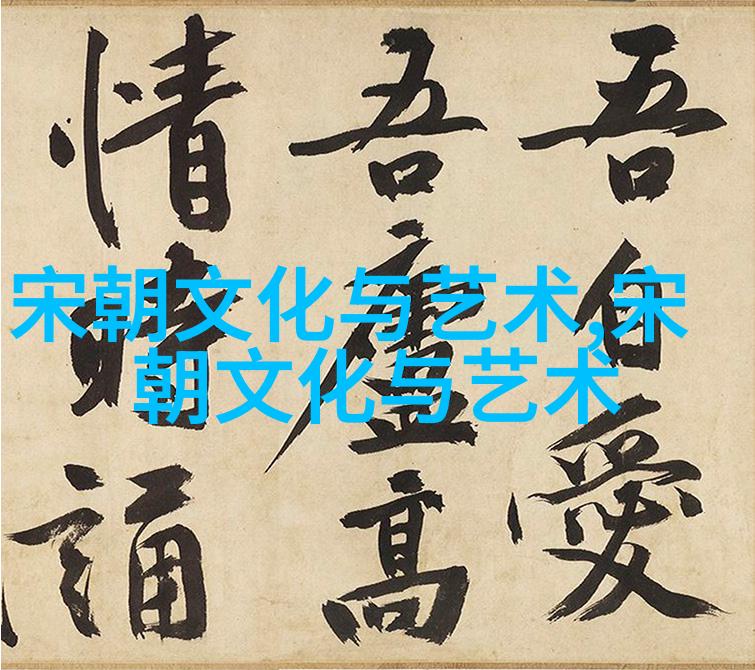 吾自愛
吾廬高
情時誦
宋朝文化与艺术,宋
朝文化与艺术